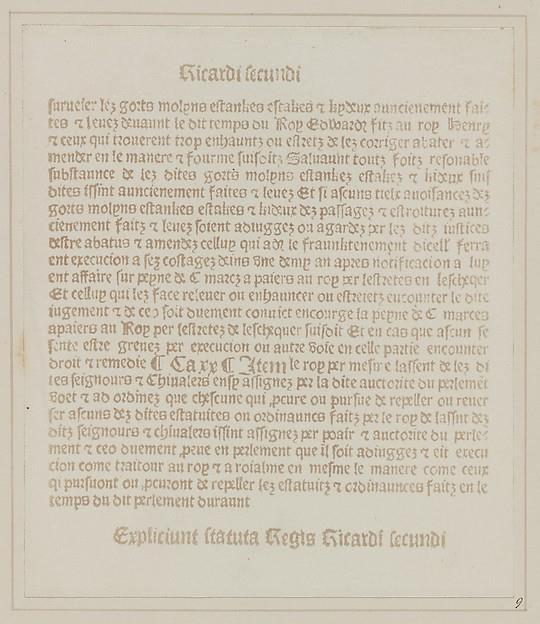 Ricardi secundi
surueier lez gorts molyns estankes estakes ⁊ kydeux auncienement fai-
tes ⁊ leuez deuaunt le dit temps du Roy Edward fitz au roy Henry
⁊ ceux qui trouerent trop enhauntz ou estretz de lez corriger abater ⁊ a-
mender en le manere ⁊ fourme suisditz Sauaunt toutz foitz resonable
substaunce de lez dites gorts molyns estankez estakez ⁊ kideux suis
dites issint auncienement faites ⁊ leuez Et si ascuns tielx anoisancez dez
gorts molyns estankes estakes ⁊ kideux dez passagez ⁊ estroiturez aun-
cienement faitz ⁊ leuez soient adiuggez ou agardez per lez ditz iustices
destre abatus ⁊ amendez celluy qui ad le fraunktenement dicell ferra
ent execucion a sez costagez deins vne demy an apres notificacion a luy
ent affaire sur peyne de C marcz a paiers au roy per lestretes en leschequer
Et celluy qui lez face releuer ou enhauncer ou estretetz encounter le dite
iugement ⁊ de ceo soit duement conuict encourge la peyne de C marces
apaiers au Roy per lestretez de leschequer suisdit Et en cas que ascun se
sente estre greuez per execucion ou autre voie en celle partie encounter
droit ⁊ remedie ¶ Ca xx ¶ Item le roy per mesme lassent de lez di
tes seignours ⁊ Chiualers ensy assignez per la dite auctorite du perlement
voet ⁊ ad ordinez que chescune qui pcure ou pursue de repeller ou reuer
ser ascuns dez dites estatuites ou ordinaunces faitz per le roy de lassent dez
ditz seignours ⁊ chiualers issint assignez per poair ⁊ auctorite du perle-
ment ⁊ ceo duement proue en perlement que il soit adiuggez ⁊ eit execu
cion come traitour au roy ⁊ a roialme en mesme le manere come ceux
qi pursuont ou pcuront de repeller lez estatuitz ⁊ ordinaunces faitz en le
temps du dit perlement duraunt
Expliciunt statuta Regis Ricardi secundi
9